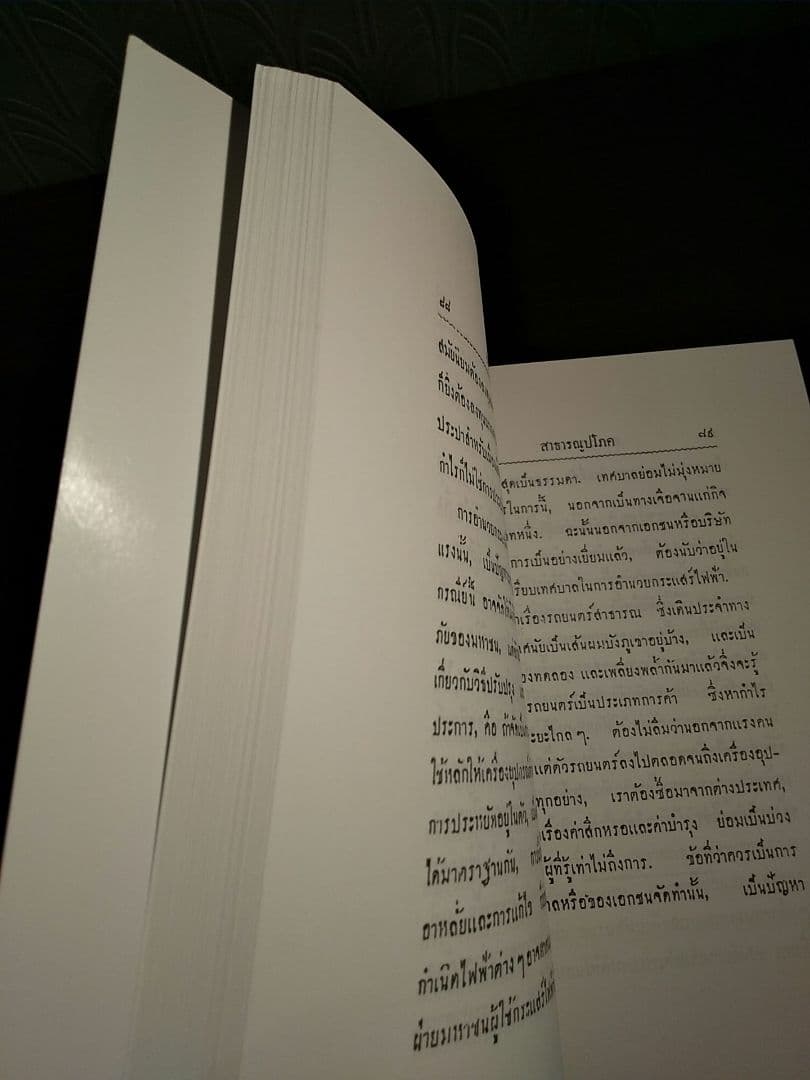 ๘๘
สมัยนิยมต้อง
ก็ยิ่งต้องลงทุน
ประปาสำหรับเมือง
กำไรก็ไม่ใช่การ
การอำนวย
แรงนั้น, เป็นปัญหา
กรณีย์นั้น อาจ
ภัยของมหาชน,
เกี่ยวกับวิธีปรับปรุง
ประการ, คือ ถ้าจัด
ใช้หลักให้เครื่องอุปกรณ์
การประหยัดอยู่ในตัว,
ได้มาตราฐานกัน,
อาหลั่ยและการแก้ไข
กำเนิดไฟฟ้าต่าง ๆ อาจ
ฝ่ายมหาชนผู้ใช้กระแสร์ไฟฟ้า
สาธารณูปโภค ๘๙
สุดเป็นธรรมดา. เทศบาลย่อมไม่มุ่งหมาย
ในการนี้, นอกจากเป็นทางเจือจานแก่กิจ
หนึ่ง. ฉะนั้นนอกจากเอกชนหรือบริษัท
การเป็นอย่างเยี่ยมแล้ว, ต้องนับว่าอยู่ใน
เทศบาลในการอำนวยกระแสร์ไฟฟ้า.
เรื่องรถยนตร์สาธารณ ซึ่งเดินประจำทาง
เป็นเส้นผมบังภูเขาอยู่บ้าง, และเป็น
ทดลอง และเพลี่ยงพล้ำกันมาแล้วจึงจะรู้
รถยนตร์เป็นประเภทการค้า ซึ่งหากำไร
ระยะไกล ๆ. ต้องไม่ลืมว่านอกจากแรงคน
แต่ตัวรถยนตร์ลงไปตลอดจนถึงเครื่องอุป-
ทุกอย่าง, เราต้องซื้อมาจากต่างประเทศ,
เรื่องค่าสึกหรอและค่าบำรุง ย่อมเป็นบ่วง
ผู้ที่รู้เท่าไม่ถึงการ. ข้อที่ว่าควรเป็นการ
หรือของเอกชนจัดทำนั้น, เป็นปัญหา